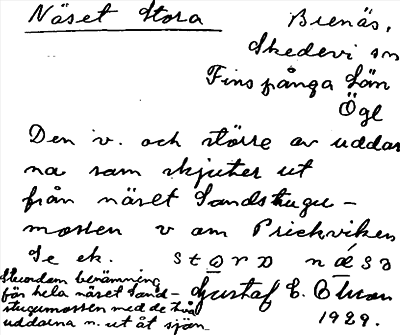 Näset Stora
Brenäs,
Skedevi sn
Finspånga Län
Ögl
Den v. och större av uddar
na som skjuter ut
från näset Sandstugu-
mossen v om Prickviken
Se ek.
benämning
för hela näset Sand-
stugumossen med de två
uddarna n. ut åt sjön
Gustaf E.
1929.